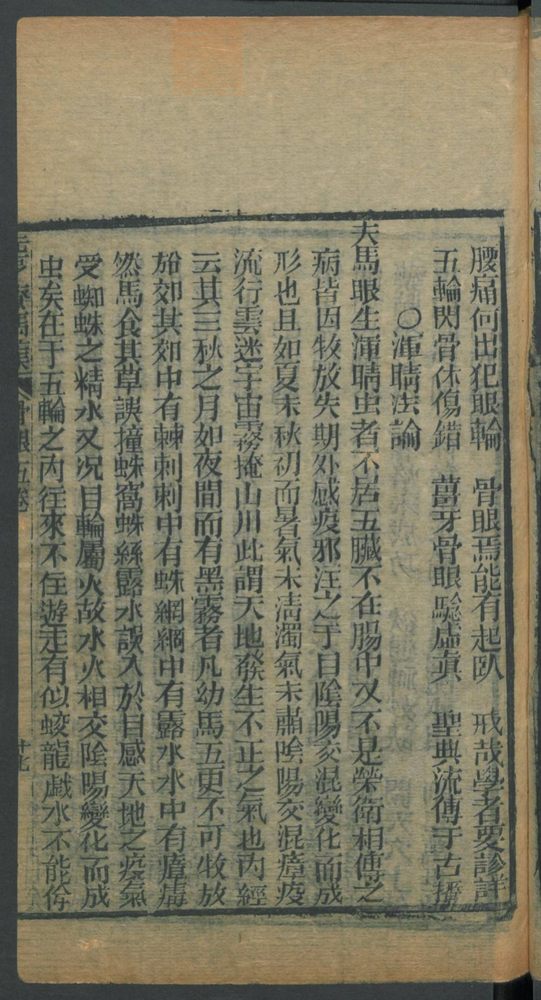 腰痛何出犯眼輪　骨眼焉能有起臥　戒哉學者要診詳
五輪閃骨休傷錯　薑牙骨眼騐虛真　聖典流傳于古播
○渾睛法論
夫馬眼生渾睛虫者不居五臟不在腸中又不是榮衛相傳之
病皆因牧放失期外感疫邪注之于目陰陽交混變化而成
形也且如夏末秋初而暑氣未清濁氣未肅陰陽交混瘴疫
流行雲迷宇宙霧掩山川此謂天地發生不正之氣也內經
云其三秋之月如夜間而有黑霧者凡幼馬五更不可牧放
於郊其郊中有棘刺刺中有蛛網網中有露水水中有瘴毒
然馬食其草誤撞蛛窩蛛絲露水誤入於目感天地之疫氣
受蜘蛛之精水又況目輪屬火故水火相交陰陽變化而成
虫矣在于五輪之內往來不住遊走有似蛟龍戲水不能停
骨眼五卷
十七